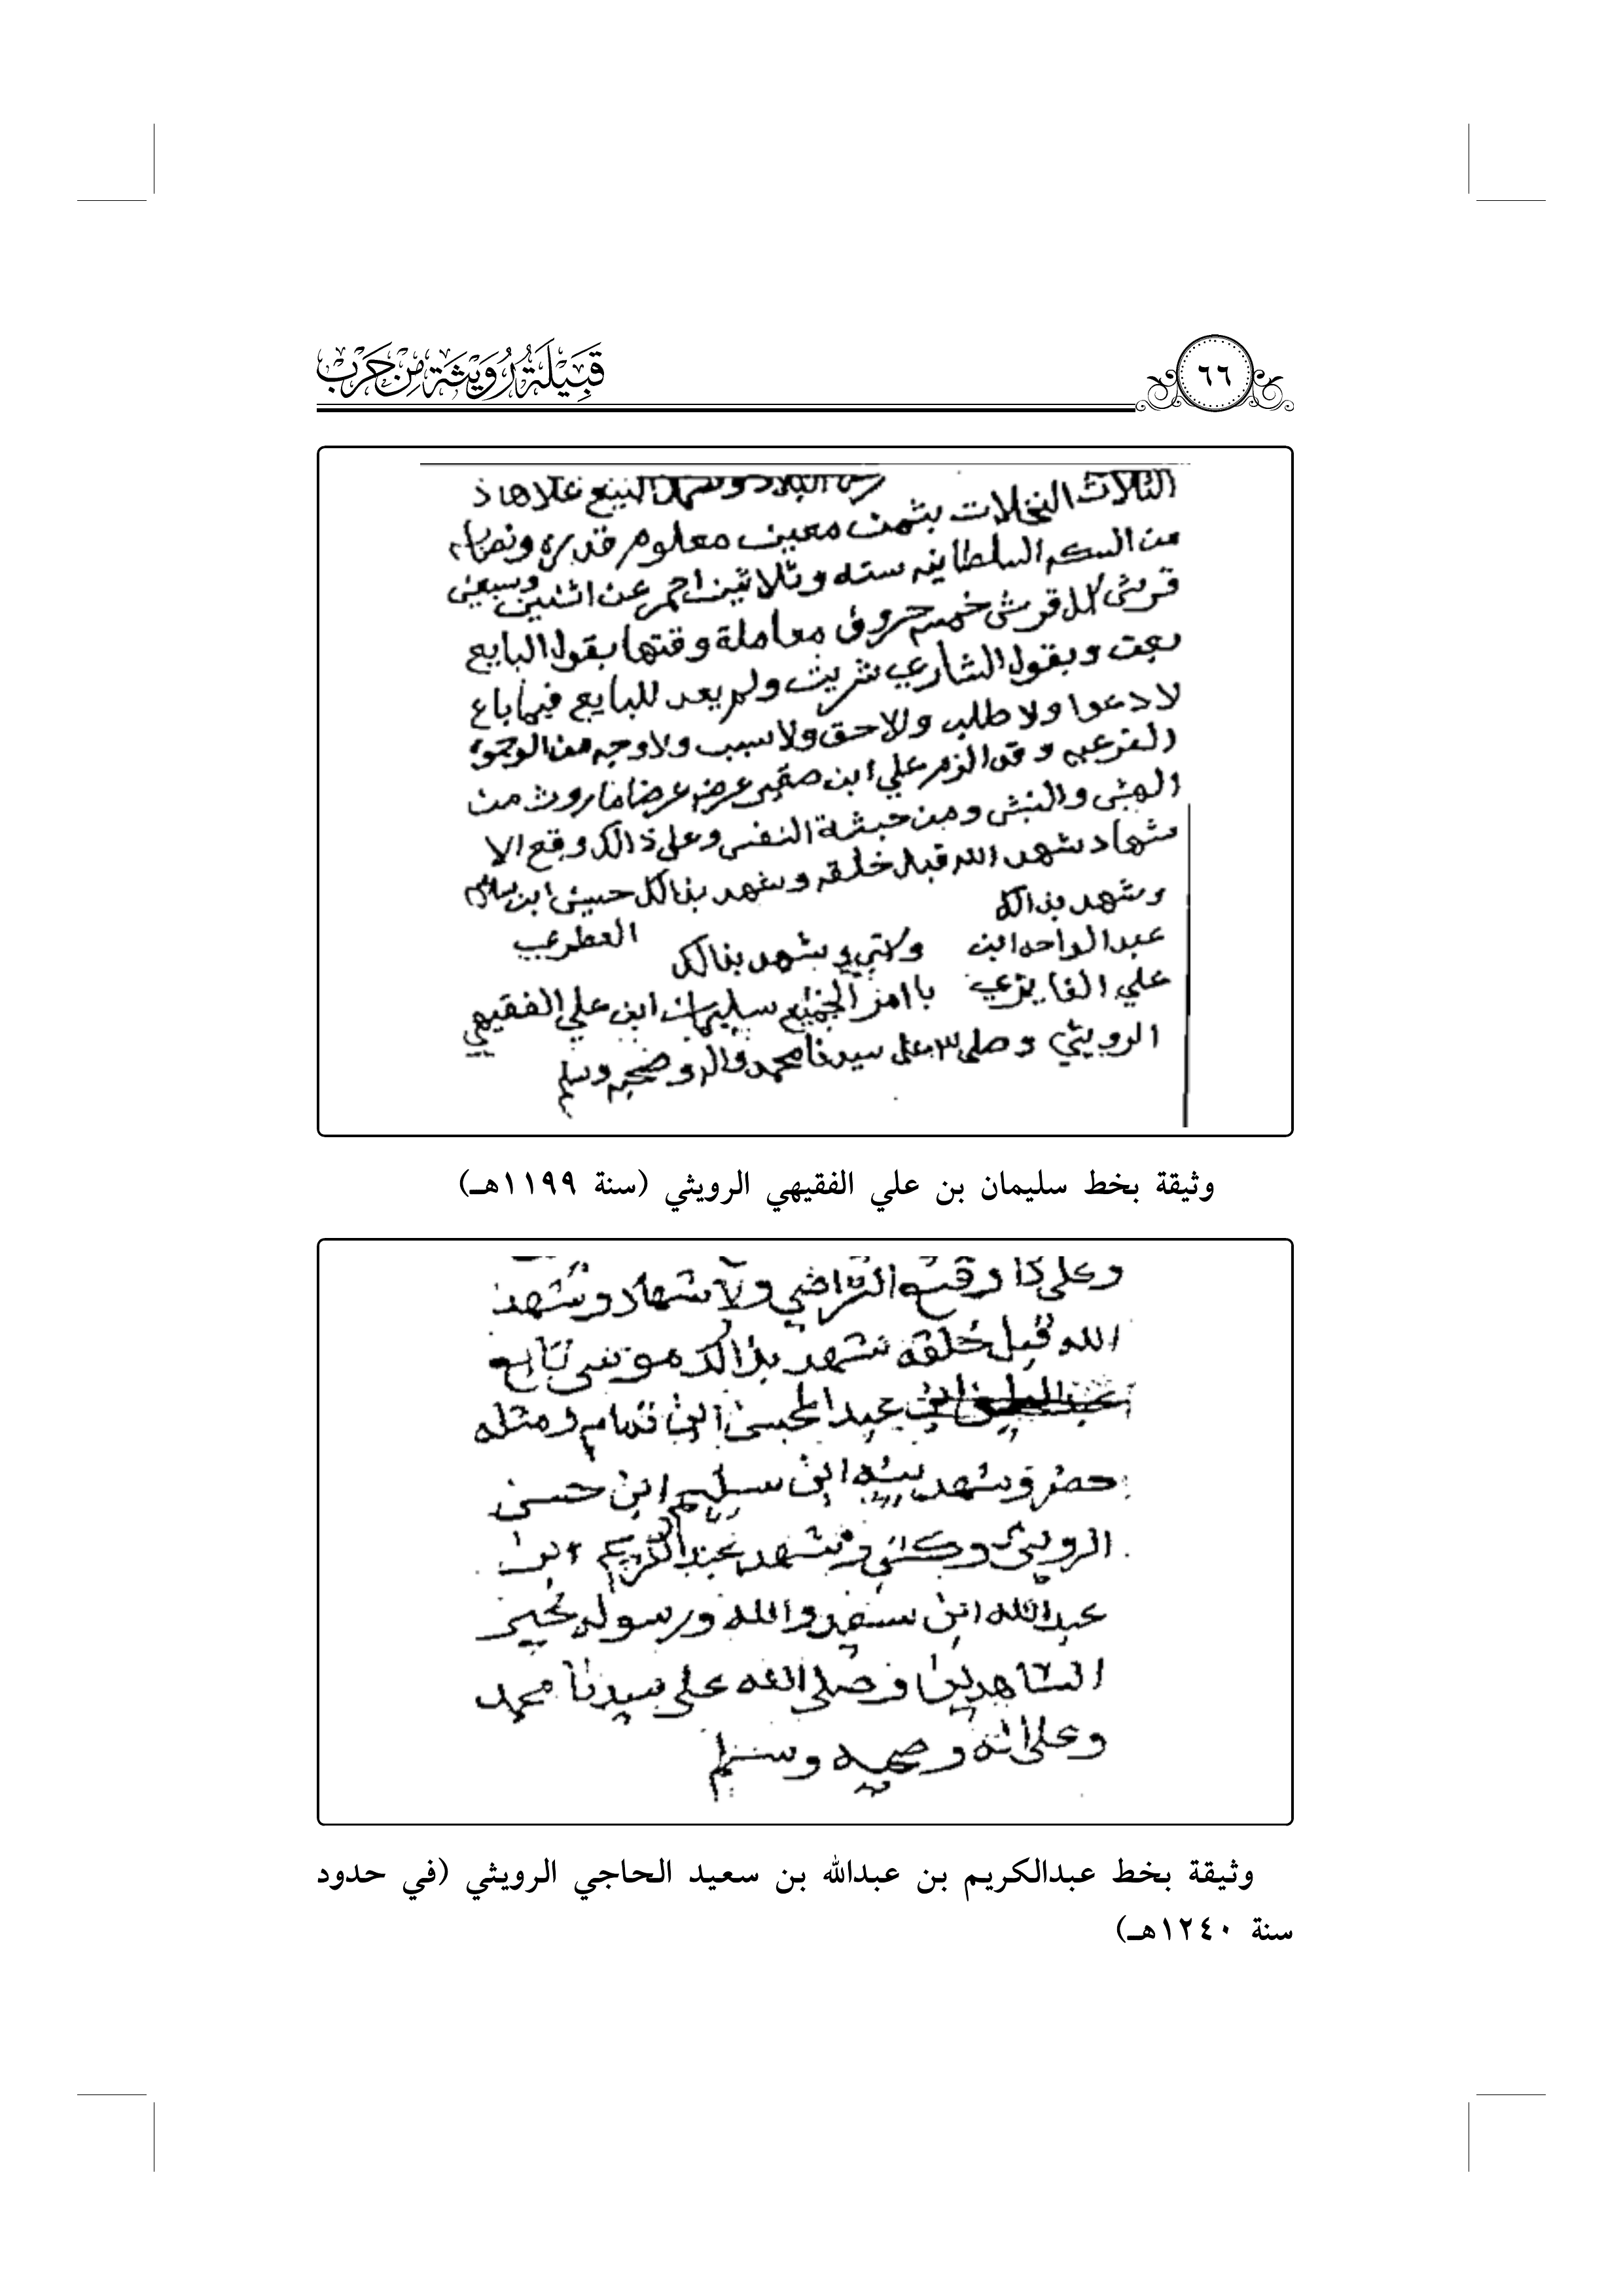 قَبِيلَة رُوَيْثَة مِن حَرْب
٦٦
الثلاث النخلات بثمن معين معلوم قدره ونصابه
من السكه السلطانيه سته وثلاثين احمر عن اثنين وسبعين
قرش كل قرش خمسه حروف معاملة وقتها بقول البايع
بعت وبقول الشاري شريت ولم يعد للبايع فيما باع
لا دعوا ولا طلب ولا حق ولا سبب ولا وجه من الوجوه
الشرعيه وقد الزم علي ابن صقر عرضه عرضا من
الهبش والنبش ومن خبشة النفس وعلى ذالك وقع الا
شهاد شهد الله قبل خلقه وشهد بذالك حسين ابن سالم
وشهد بذالك
عبد الواحد ابن وكاتبه وشهد بذالك
علي الفايزي باامر الجميع سليمان ابن علي الفقيهي
الرويثي وصلى على سيدنا محمد واله وصحبه وسلم
وثيقة بخط سليمان بن علي الفقيهي الرويثي (سنة ١١٩٩هـ)
وعلى ذا وقع التراضي ولاشهاد وشهد
الله قبل خلقه شهد بذالك
ابن عبد المحسن ابن تمام ومثله
حضر وشهد ابن سليم ابن حسن
الرويثي وكتب وشهد عبد الكريم ابن
عبدالله ابن سعيد والله ورسوله خير
الشاهدين وصلى الله على سيدنا محمد
وعلى اله وصحبه وسلم
وثيقة بخط عبدالكريم بن عبدالله بن سعيد الحاجي الرويثي (في حدود
سنة ١٢٤٠هـ)